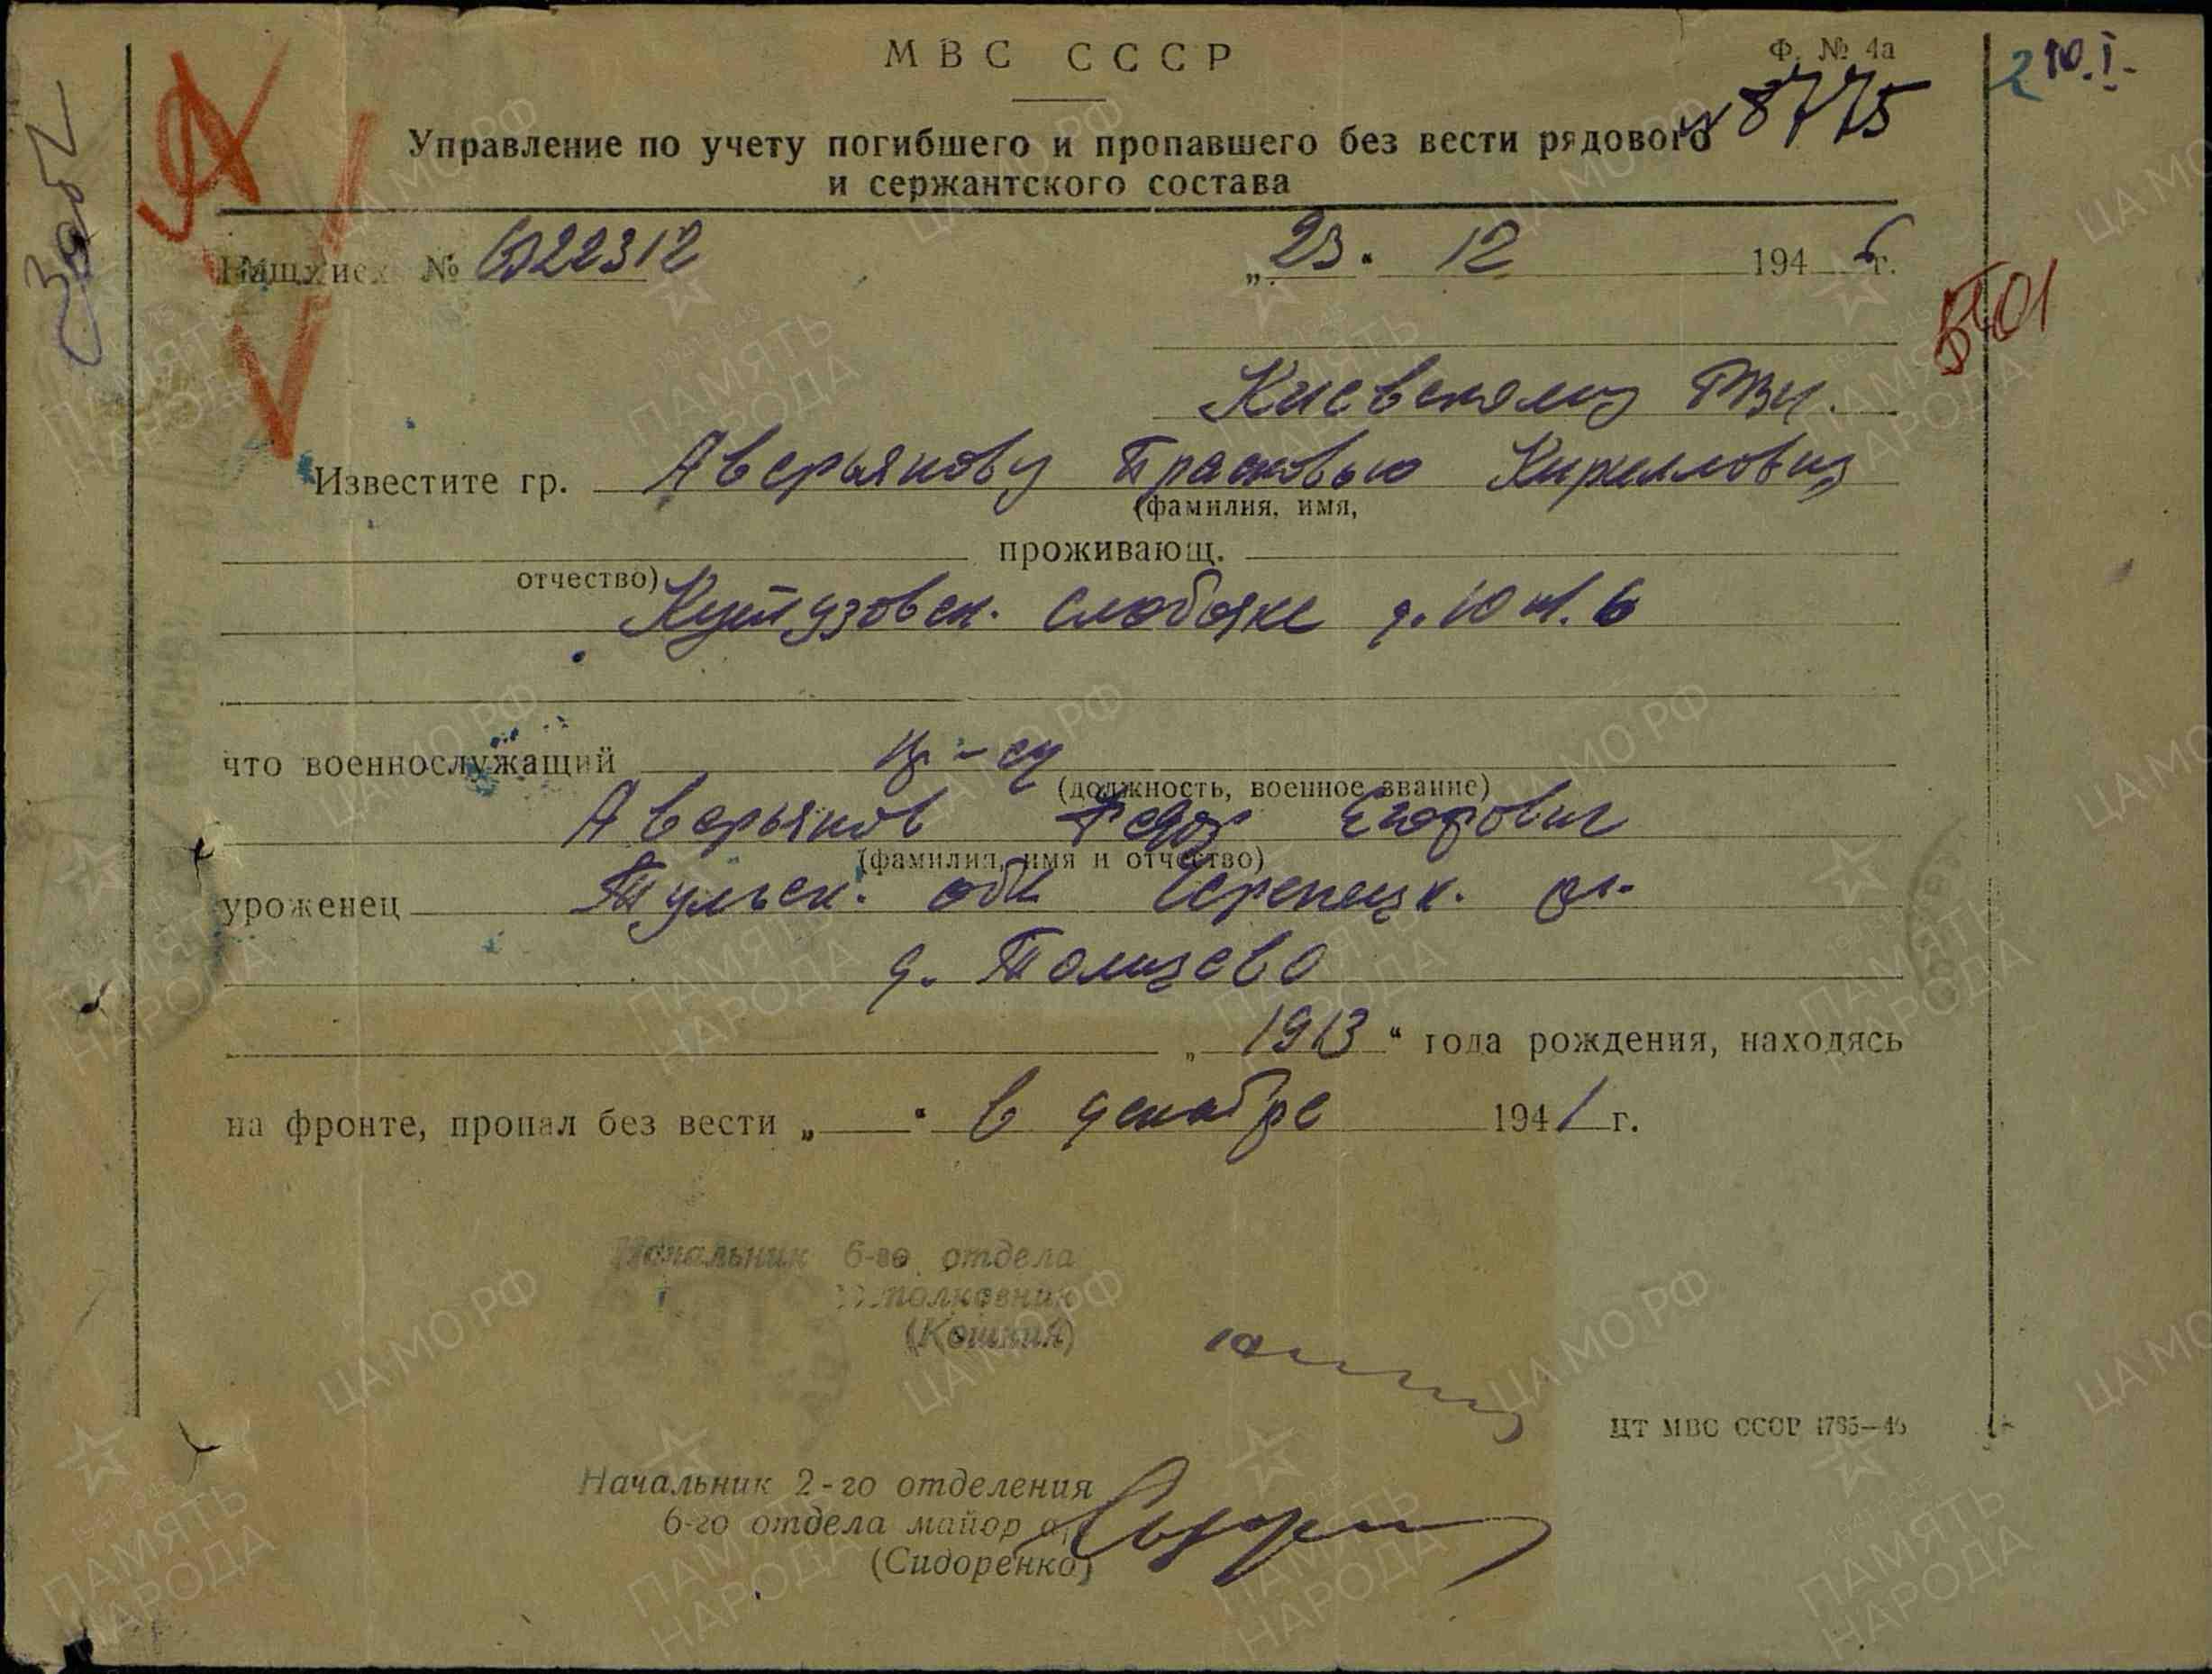 МВС СССР
Ф. № 4а
2 10.I.
8775
Управление по учету погибшего и пропавшего без вести рядового
и сержантского состава
№ 22312
„23“ 12 1946 г.
Киевскому РВК.
Известите гр. Аверьянову Прасковью Кирилловну
(фамилия, имя,
отчество) проживающ.
Кутузовск. слободке д. 10 к. 6
что военнослужащий кр-ец
(должность, военное звание)
Аверьянов Федор Егорович
(фамилия, имя и отчество)
уроженец Тульск. обл Черепецк. р.
д.
„1913“ года рождения, находясь
на фронте, пропал без вести „ “ в декабре 1941 г.
Начальник 6-го отдела
полковник
(Кошкин)
ЦТ МВС СССР 1785—46
Начальник 2-го отделения
6-го отдела майор а/с
(Сидоренко)
ЦА МО РФ
ПАМЯТЬ
НАРОДА
1941-1945